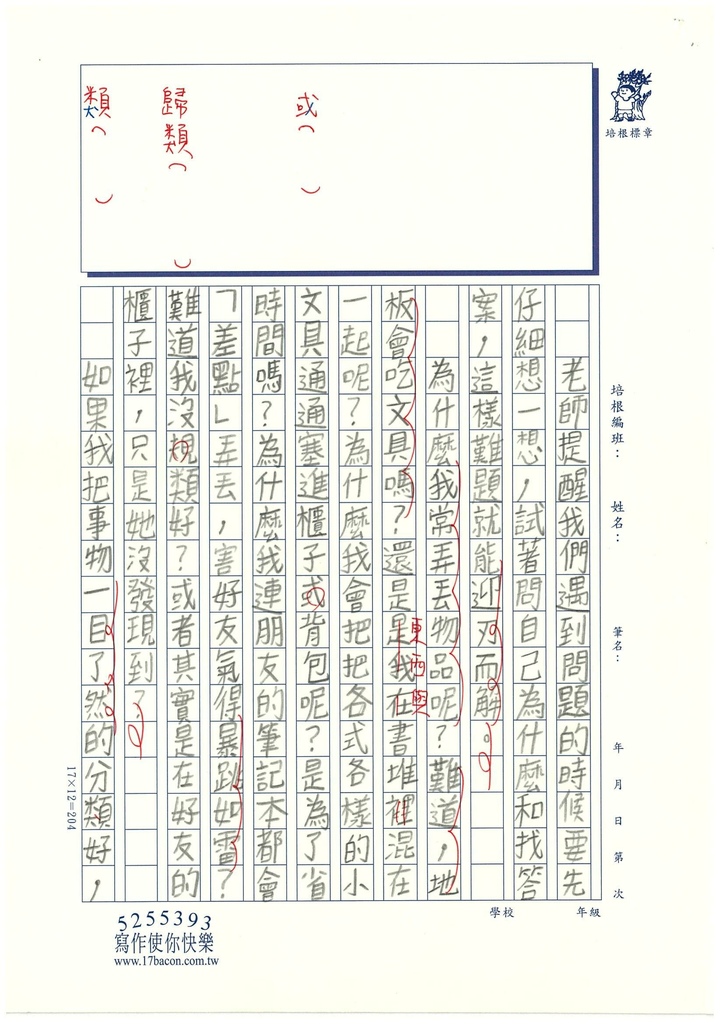 培根標章
或（　）
歸類（　）
類（　）
培根編班：
姓名：
筆名：
年　月　日　第　次
年級
學校
老師提醒我們遇到問題的時候要先
仔細想一想，試著問自己為什麼和找答
案，這樣難題就能迎刃而解。
為什麼我常弄丟物品呢？難道，地
板會吃文具嗎？還是是我在書堆裡混在
東西與
一起呢？為什麼我會把把各式各樣的小
文具通通塞進櫃子或背包呢？是為了省
時間嗎？為什麼我連朋友的筆記本都會
「差點」弄丟，害好友氣得暴跳如雷？
難道我沒規類好？或者其實是在好友的
櫃子裡，只是她沒發現到？
如果我把事物一目了然的分類好，
17×12=204
5255393
寫作使你快樂
www.17bacon.com.tw